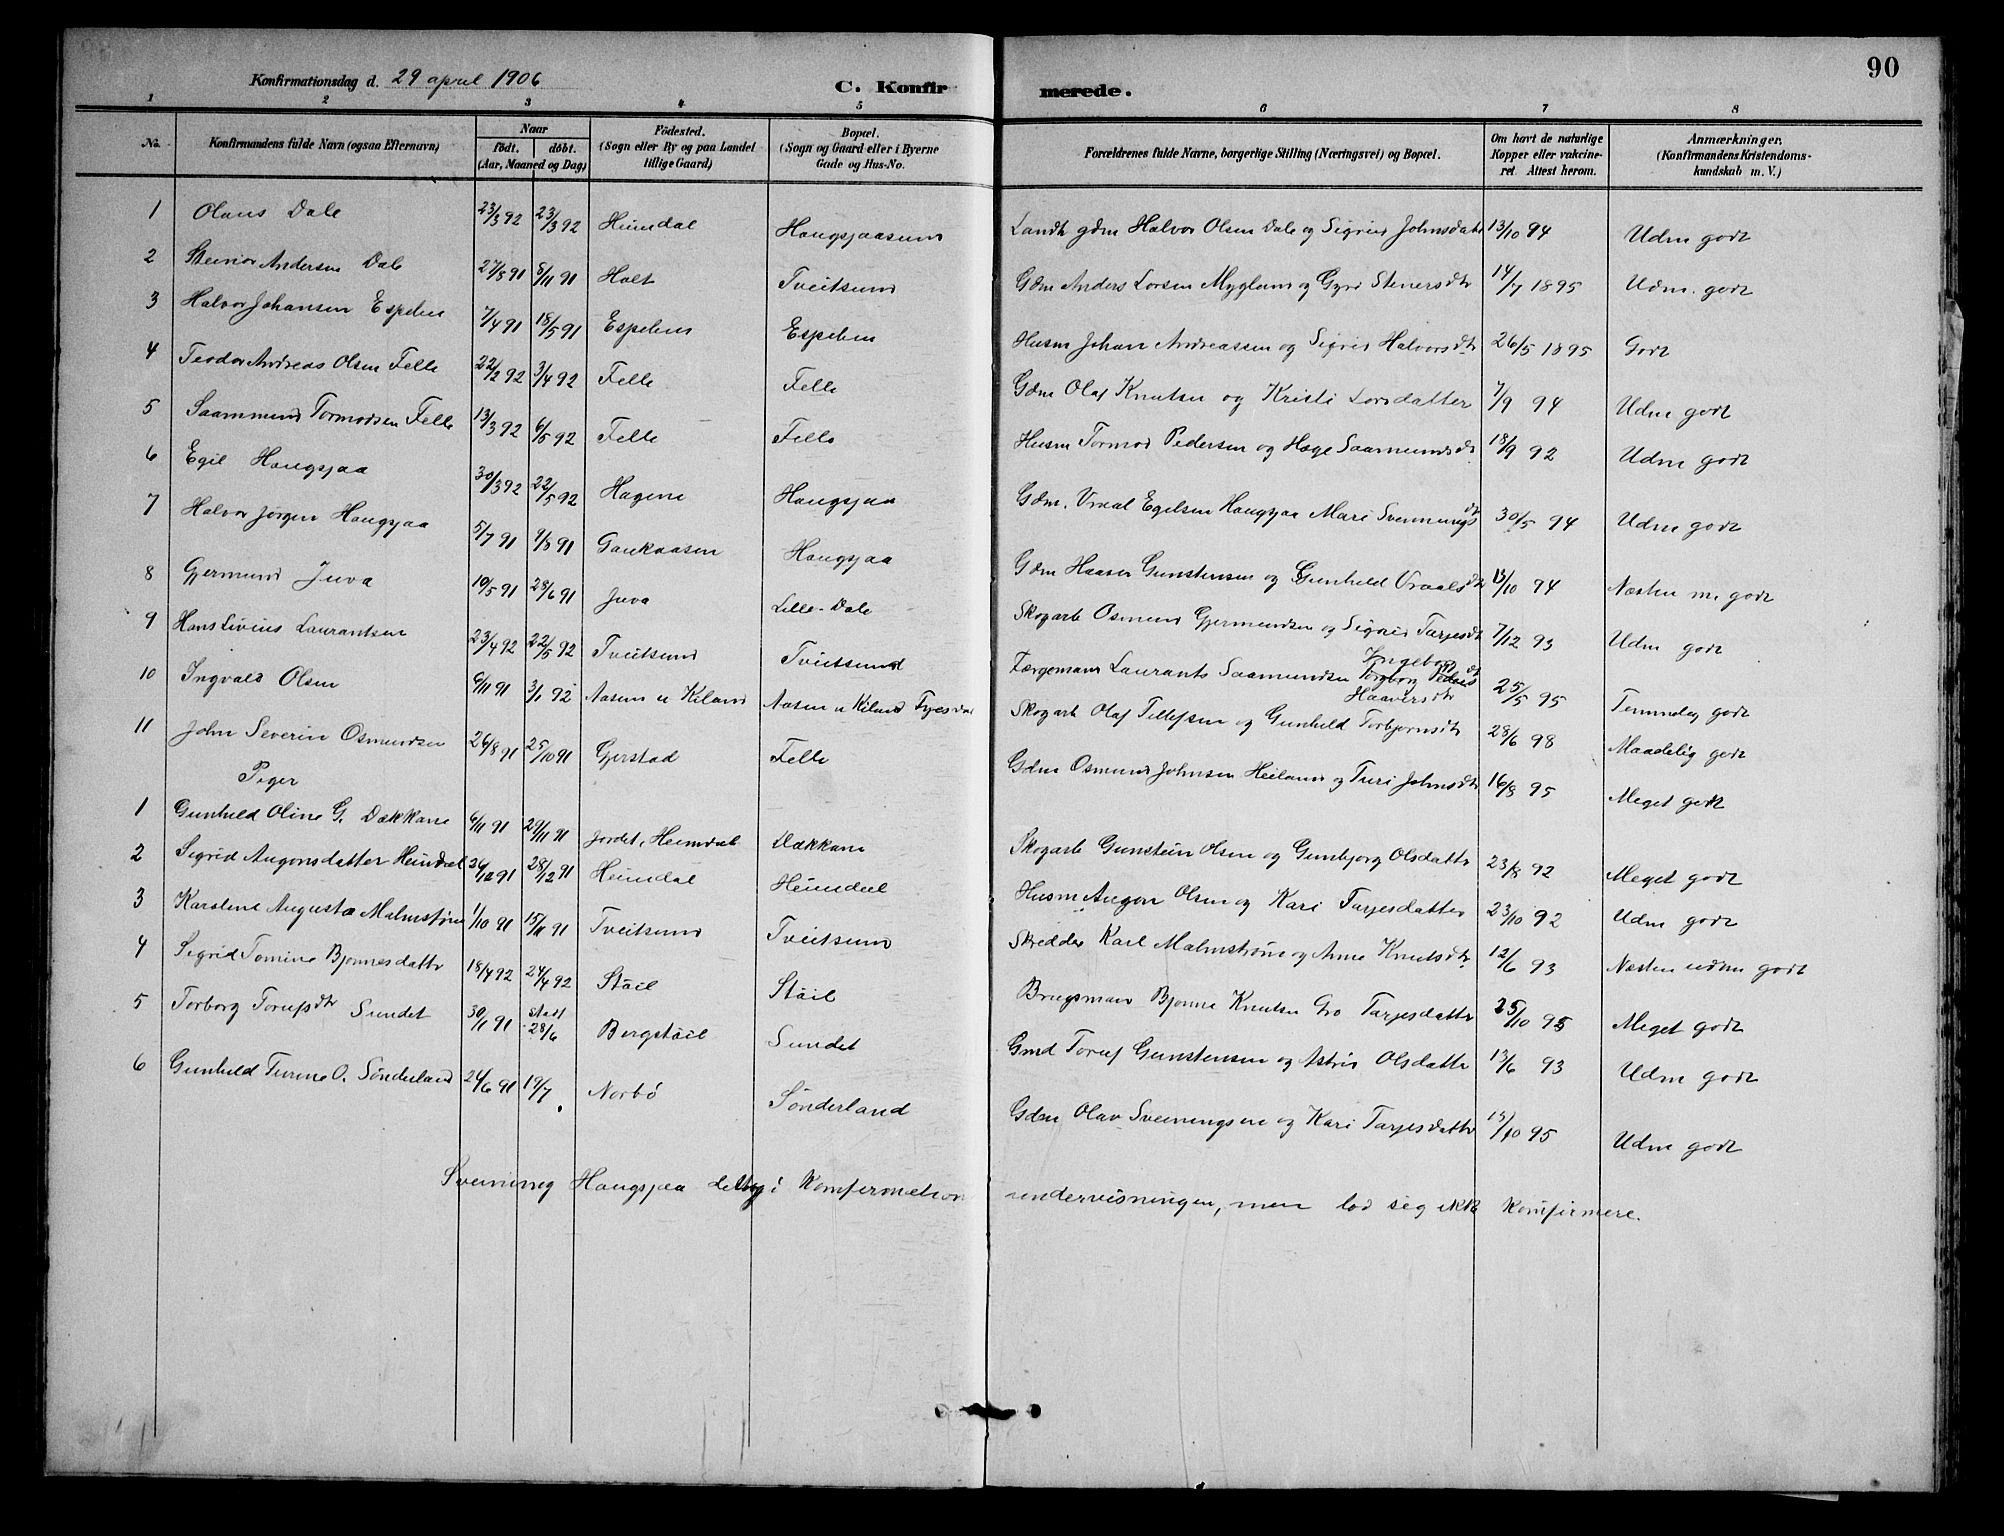 90
Konfirmationsdag d. 29 april 1906
C. Konfirmerede.
1 2 3 4 5 6 7 8
No. Konfirmandens fulde Navn (ogsaa Efternavn) Naar födt. döbt. (Aar, Maaned og Dag) Födested. (Sogn eller By og paa Landet tillige Gaard) Bopæl. (Sogn og Gaard eller i Byerne Gade og Hus-No. Forældrenes fulde Navne, borgerlige Stilling (Næringsvei) og Bopæl. Om havt de naturlige Kopper eller vakcineret Attest herom. Anmærkninger. (Konfirmandens Kristendomskundskab m. V.)
1 Olaus Dale 23/3 92 23/3 92 Heimdal Haugsjaasund Landh gdm Halvor Olsen Dale og Sigrid Johnsdatr 13/10 94 Udm godt
2 Steinar Andersen Dale 27/8 91 8/11 91 Holt Tveitsund Gdm Anders Larsen Myglann og Gyro Stenersdtr 14/7 1895 Udm. godt
3 Halvor Johansen Espelien 7/4 91 18/5 91 Espelien Espelien Husm Johan Andreassen og Sigrid Halvorsdtr 26/5 1895 Godt
4 Teodor Andreas Olsen Felle 22/2 92 3/4 92 Felle Felle Gdm Olaf Knutsen og Kristi Larsdatter 7/9 94 Udm godt
5 Saammund Tormodsen Felle 13/3 92 6/5 92 Felle Felle Husm Tormod Pedersen og Hæge Saamundsdtr 18/9 92 Udm godt
6 Egil Haugsjaa 30/3 92 22/5 92 Hagene Haugsjaa Gdm. Vraal Egelsen Haugsjaa Mari Svennungsdtr 30/5 94 Udm godt
7 Halvor Jørgen Haugsjaa 5/7 91 9/8 91 Gaukaasen Haugsjaa Gdm Haaver Gunstensen og Gunhild Vraalsdtr 13/10 94 Næsten m. godt
8 Gjermund Juva 19/5 91 28/6 91 Juva Lille-Dale Skogarb Osmund Gjermundsen og Sigrid Tarjesdtr 7/12 93 Udm godt
9 Hans Livius Laurantsen 23/4 92 22/5 92 Tveitsund Tveitsund Færgemann Laurants Saamundsen Ingeborg Haaversdtr 25/5 95 Temmelig godt
10 Ingvald Olsen 6/11 91 3/1 92 Aasen u Kiland Aasen u Kiland Fyresdal Skogarb Olaf Tellefsen og Gunhild Torbjørnsdtr 28/6 98 Maadelig godt
11 John Severin Osmundsen 26/8 91 25/10 91 Gjerstad Felle Gdm Osmund Johnsen Heiland og Turi Johnsdtr 16/8 95 Meget godt
Piger
1 Gunhild Oline G. Dækkane 6/11 91 29/11 91 Jordet, Heimdal Dækkane Skogarb Gunstein Olsen og Gunbjorg Olsdattr 23/8 92 Meget godt
2 Sigrid Augonsdatter Heimdal 24/12 91 28/12 91 Heimdal Heimdal Husm Augon Olsen og Kari Tarjesdatter 23/10 92 Udm godt
3 Karoline Augusta Malmstrøm 1/10 91 15/11 91 Tveitsund Tveitsund Skrædder Karl Malmstrøm og Anne Knutsdtr 12/6 93 Næsten udm godt
4 Sigrid Tomine Bjonnesdattr 18/4 92 24/4 92 Stöil Stöil Brugsmann Bjonne Knutsen Gro Tarjesdattr 25/10 95 Meget godt
5 Torborg Torufsdtr Sundet 30/1 91 stadf 28/6 Bergstöil Sundet Gmd Toruf Gunstensen og Astrid Olsdattr 13/6 93 Udm godt
6 Gunhild Turine O. Sönderland 24/6 91 19/7 Norbö Sönderland Gdm Olav Sveinungsen og Kari Tarjesdattr 13/10 95 Udm godt
Sveinung Haugsjaa deltog i Konfirmationsundervisningen, men lod sig ikke konfirmere.